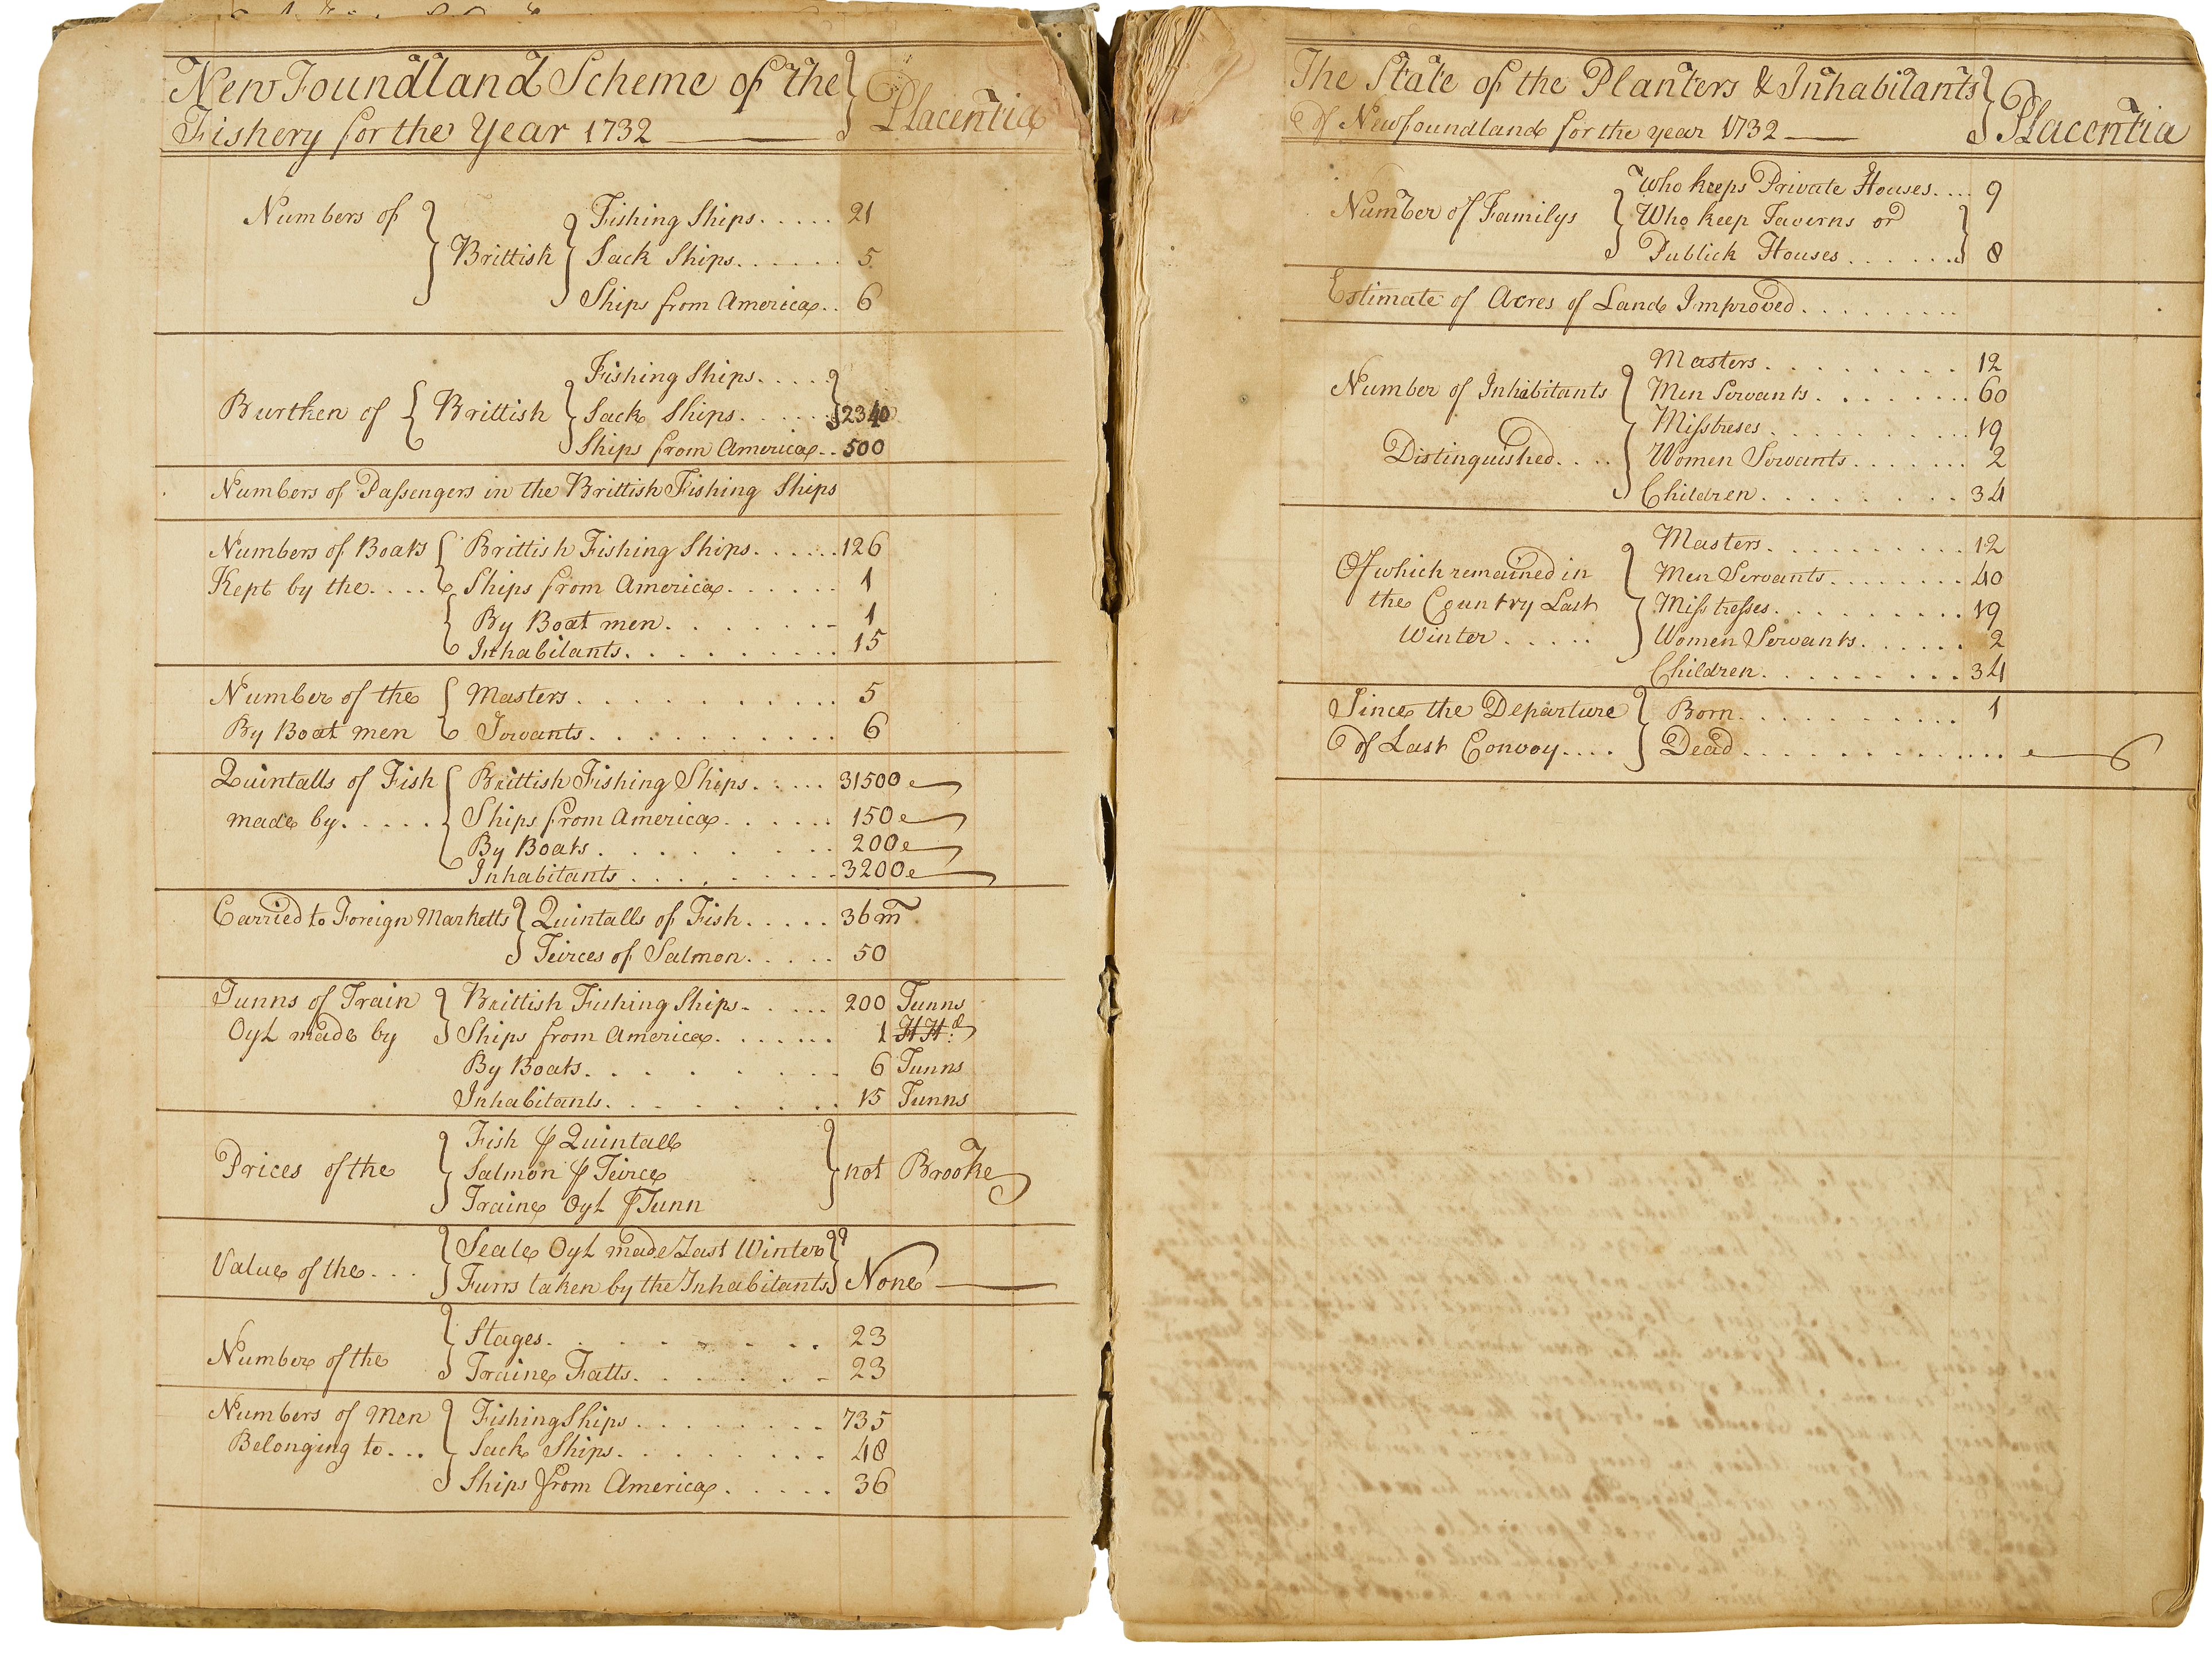 New Foundland Scheme of the } Placentia
Fishery for the Year 1732
Numbers of } Brittish { Fishing Ships..... 21
Sack Ships...... 5
Ships from America.. 6
Burthen of { Brittish { Fishing Ships.... }
Sack Ships...... } 2340
Ships from America.. 500
Numbers of Passengers in the Brittish Fishing Ships
Numbers of Boats { Brittish Fishing Ships...... 126
Kept by the.... Ships from America...... 1
By Boat men....... 1
Inhabitants.......... 15
Number of the { Masters........... 5
By Boat men Servants.......... 6
Quintalls of Fish { Brittish Fishing Ships..... 31500
made by..... Ships from America...... 150
By Boats......... 200
Inhabitants......... 3200
Carried to Foreign Marketts } Quintalls of Fish..... 36m
Teirces of Salmon..... 50
Tunns of Train } Brittish Fishing Ships..... 200 Tunns
Oyl made by Ships from America....... 1 HHd
By Boats......... 6 Tunns
Inhabitants......... 15 Tunns
Prices of the { Fish ⅌ Quintall
Salmon ⅌ Teirce } not Brooke
Traine Oyl ⅌ Tunn
Value of the... { Seale Oyl made Last Winter }
Furrs taken by the Inhabitants } None
Number of the { Stages......... 23
Traine Fatts....... 23
Numbers of Men } Fishing Ships........ 735
Belonging to... Sack Ships......... 48
Ships from America..... 36
The State of the Planters & Inhabitants } Placentia
Of Newfoundland for the year 1732
Number of Familys { Who keeps Private Houses.... 9
Who keep Taverns or }
Publick Houses....... 8
Estimate of Acres of Land Improved.........
Number of Inhabitants { Masters......... 12
Men Servants........ 60
Misstreses.......... 19
Distinguished.... Women Servants....... 2
Children......... 34
Of which remained in { Masters.......... 12
Men Servants........ 40
the Country Last Misstresses.......... 19
Winter..... Women Servants...... 2
Children.......... 34
Since the Departure } Born........... 1
of Last Convoy.... Dead.............